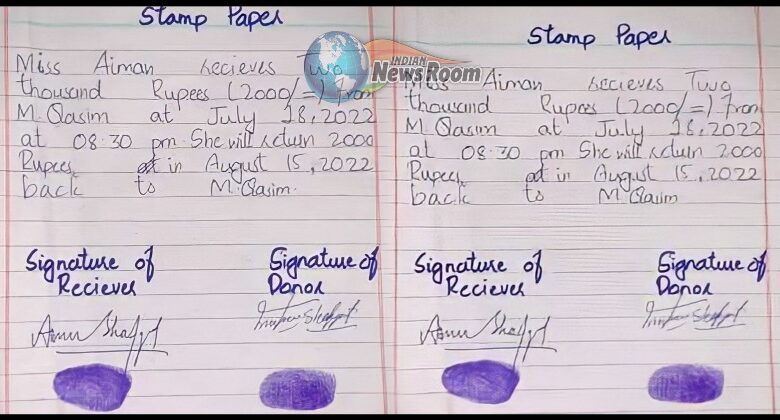 Stamp Paper
Miss Aiman recieves Two
thousand Rupees (2000/=) From
M. Qasim at July 18, 2022
at 08:30 pm. She will return 2000
Rupees in August 15, 2022
back to M. Qasim.
Signature of
Reciever
Signature of
Donor
INDIAN
NewsRoom
Stamp Paper
Miss Aiman recieves Two
thousand Rupees (2000/=) From
M. Qasim at July 18, 2022
at 08:30 pm She will return 2000
Rupees in August 15, 2022
back to M. Qasim
Signature of
Reciever
Signature of
Donor